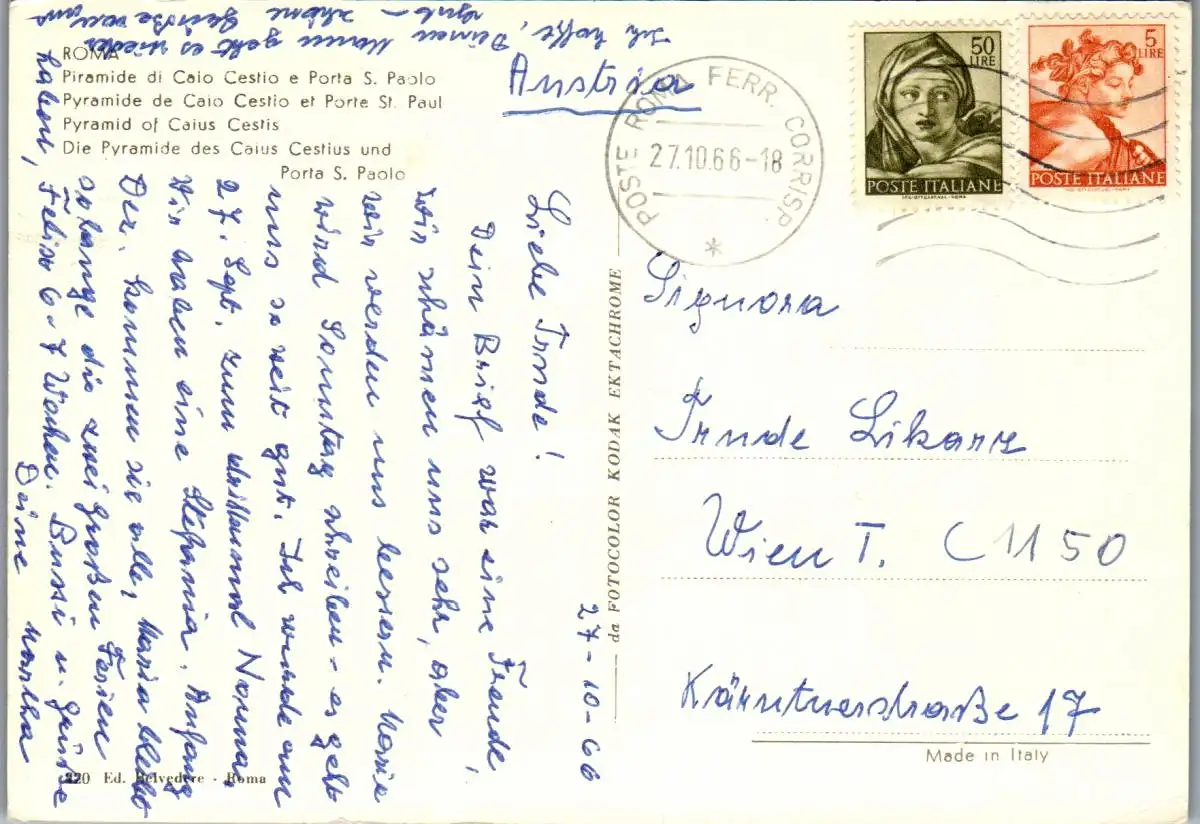 ROMA
Piramide di Caio Cestio e Porta S. Paolo
Pyramide de Caio Cestio et Porte St. Paul
Pyramid of Caius Cestis
Die Pyramide des Caius Cestius und
Porta S. Paolo
27-10-66
Liebe Trude!
Dein Brief war eine Freude,
wir schämen uns sehr, aber
wir werden uns bessern. Maria
wird Sonntag schreiben - es geht
uns so weit gut. Ich wurde am
27. Sept. zum Nonna,
Wir haben eine Stefania. Anfang
Dez. kommen sie alle, Maria bleibt
solange die zwei großen Ferien
haben, 6-7 Wochen. Bussi u. Grüße
Deine Martha
Ich hoffe, Deinen Nerven geht es wieder
gut - schöne Grüße von uns
Austria
POSTE ROMA FERR. CORRISP.
27.10.66-18
50
LIRE
POSTE ITALIANE
5
LIRE
POSTE ITALIANE
Signora
Trude Likarz
Wien I. C 1150
Kärntnerstraße 17
Made in Italy
da FOTOCOLOR KODAK EKTACHROME
220 Ed. Belvedere - Roma